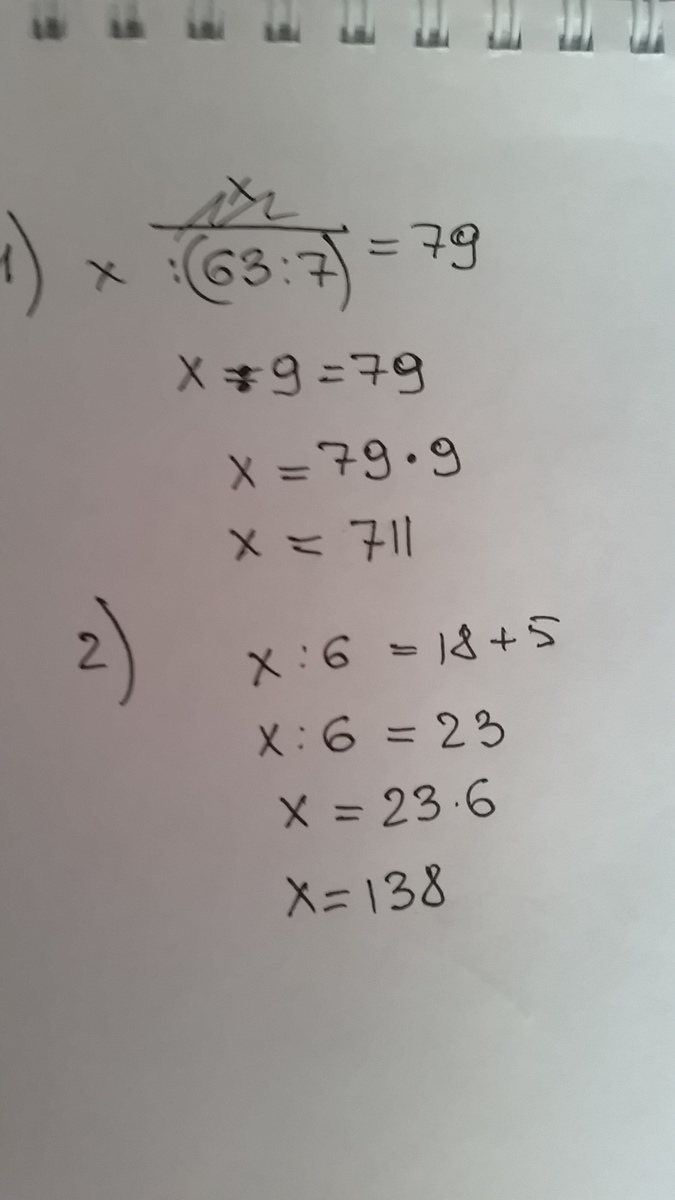 1) x :(63:7) = 79
x : 9 = 79
x = 79 · 9
x = 711
2) x : 6 = 18 + 5
x : 6 = 23
x = 23 · 6
x = 138